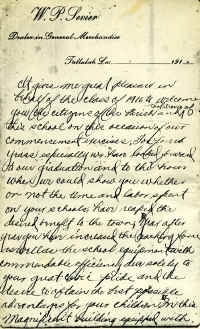 W. P. Sevier
Dealer in General Merchandise
Tallulah La. 191
It gives me great pleasure in
behalf of the class of 1916 to welcome
you the citizens of this Parish and
this school on this occasion of our
commencement exercises. For
years especially we have looked forward
to our graduation and to this hour
when we could show you whether
or not the time and labor spent
on your schools have reaped the
desired benefit to the town. Year after
year you have increased the
as well as the school equipment with
commendable efficiency due solely to
your great pride and the
desire to obtain the best possible
advantages for your children. In this
magnificent building equipped with